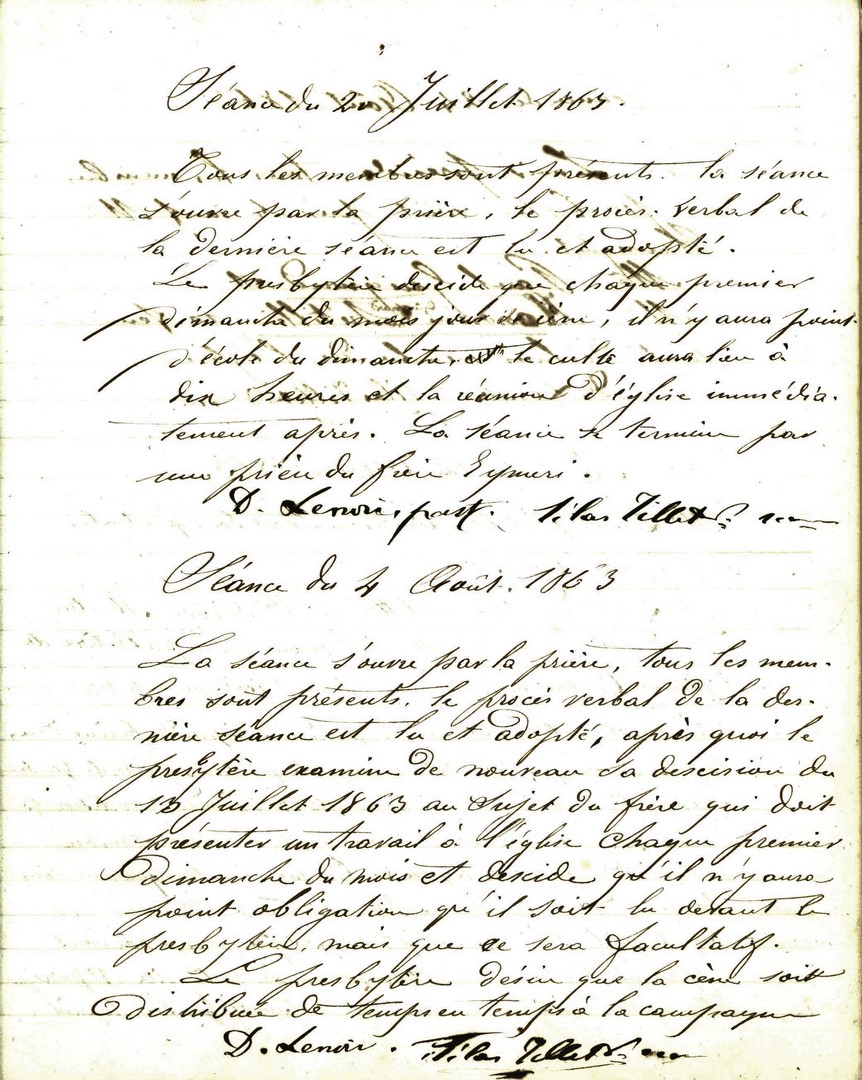 Séance du 20 Juillet 1863.
Tous les membres sont présents. la séance
s'ouvre par la prière, le procès-verbal de
la dernière séance est lu et adopté.
Le presbytère descide que chaque premier
dimanche du mois jour de cène, il n'y aura point
d'école du dimanche, le culte aura lieu à
dix heures et la réunion d'église immédia-
tement après. La séance se termine par
une prière du frère Eymeri.
D. Lenoir, past. Silas Tillet
Séance du 4 Août. 1863
La séance s'ouvre par la prière, tous les mem-
bres sont présents. le procès verbal de la der-
nière séance est lu et adopté, après quoi le
presbytère examine de nouveau sa descision du
12 Juillet 1863 au sujet du frère qui doit
présenter un travail à l'église chaque premier
Dimanche du mois et descide qu'il n'y aura
point obligation qu'il soit lu devant le
presbytère, mais que ce sera facultatif.
Le presbytère désire que la cène soit
distribuée de temps en temps à la campagne
D. Lenoir. Silas Tillet